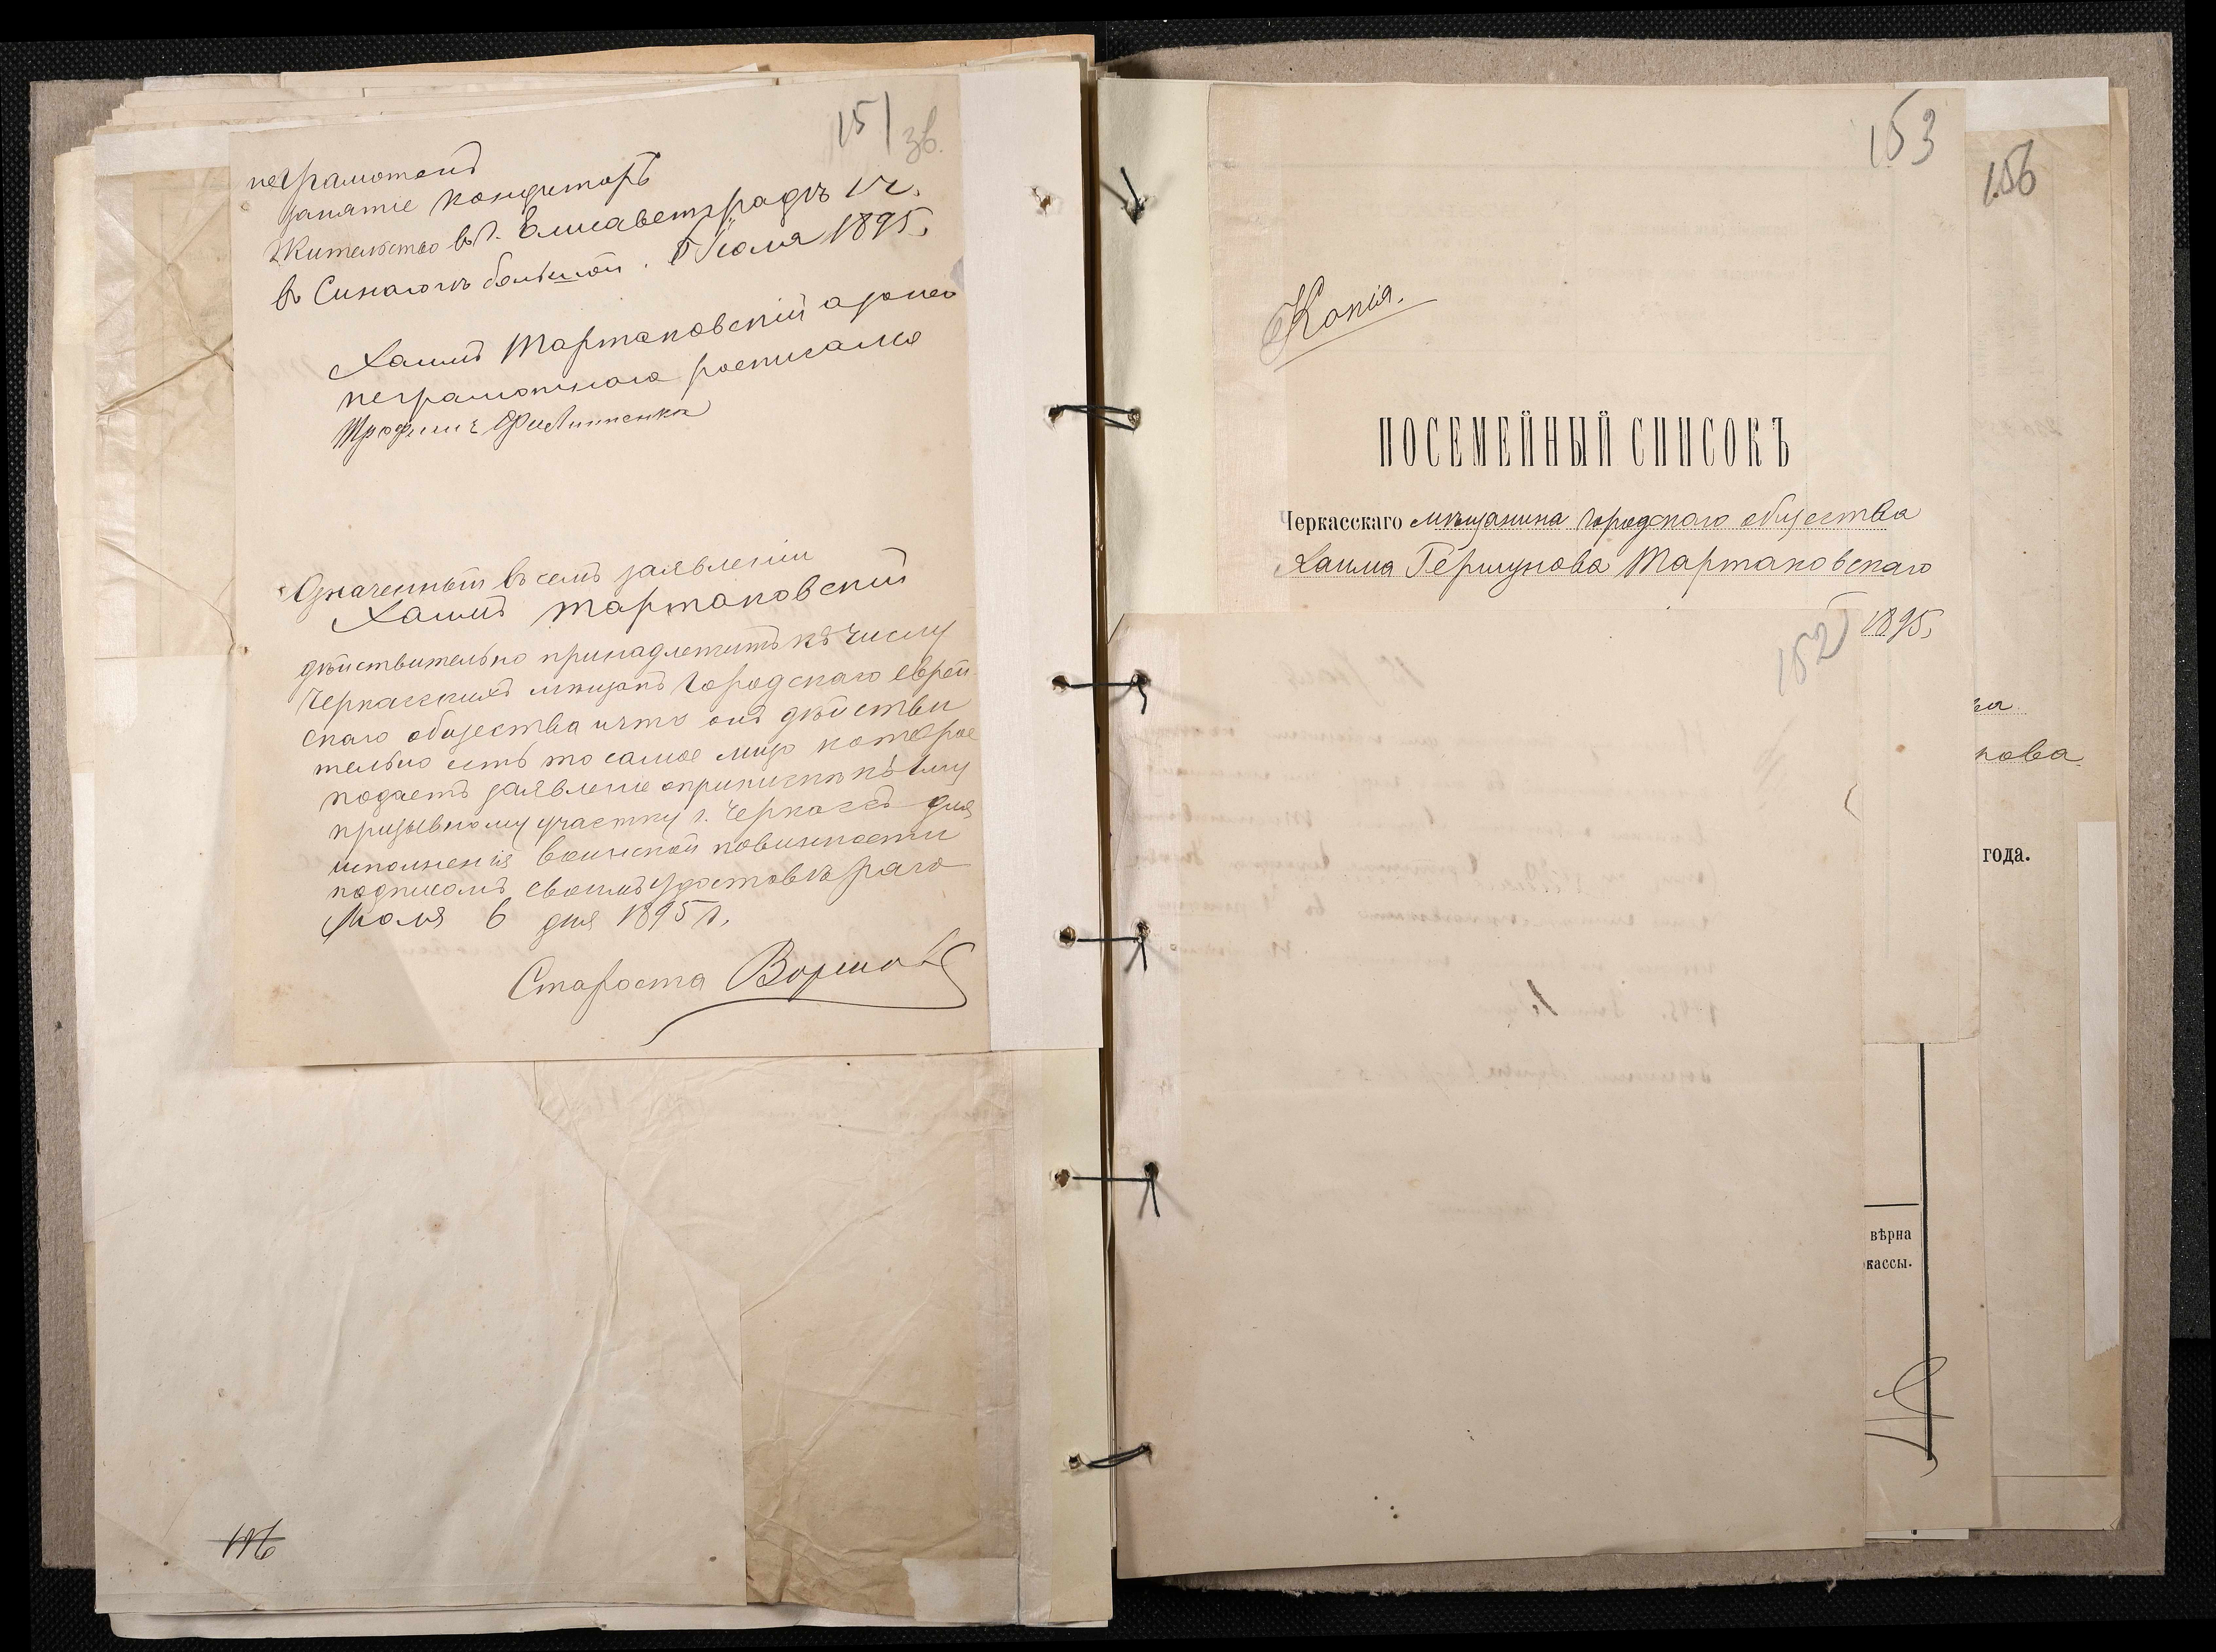 151
зв.
неграмотенъ
занятіе кондиторъ
Жительство въ г. Елисаветградѣ
въ Синагогѣ большой. 6 Іюля 1895,
Хаимъ Тартаковскій а за него
неграмотнаго росписался
Трофимъ Филипенко
Означенный въ семъ заявленіи
Хаимъ Тартаковскій
дѣйствительно принадлежитъ къ числу
Черкасскихъ мѣщанъ городскаго еврей
скаго общества и что онъ дѣйстви
тельно есть то самое лицо которое
подаетъ заявленіе о припискѣ къ 1му
призывному участку г. Черкассъ для
исполненія воинской повинности
подписомъ своимъ удостовѣряю
Іюля 6 дня 1895 г.
Староста
116
153
156
Копія.
ПОСЕМЕЙНЫЙ СПИСОКЪ
Черкасскаго мѣщанина городскаго общества
Хаима Гершунова Тартаковскаго
1895,
152
нова
года.
вѣрна
кассы.